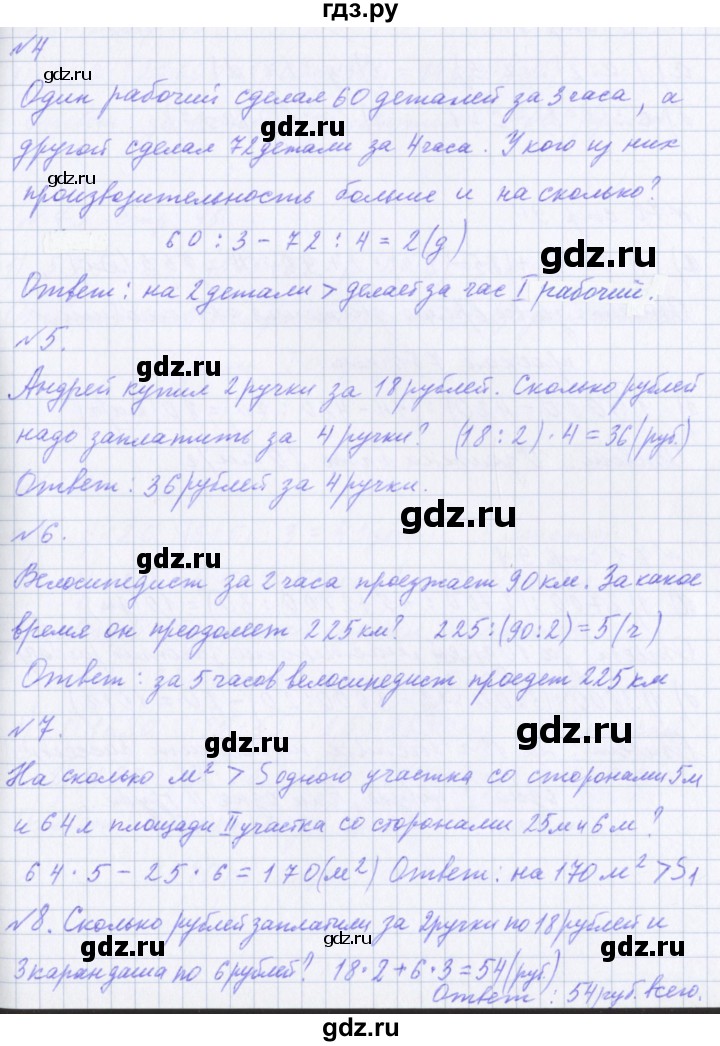 гдз.ру
№4
gdz.ru
Один рабочий сделал 60 деталей за 3 часа, а
gdz.ru
другой сделал 72 детали за 4 часа. У кого из них
gdz.ru
производительность больше и на сколько?
60 : 3 - 72 : 4 = 2 (д)
gdz.ru
Ответ: на 2 детали > делает за час I рабочий.
№5.
gdz.ru
Андрей купил 2 ручки за 18 рублей. Сколько рублей
надо заплатить за 4 ручки? (18 : 2) · 4 = 36 (руб.)
Ответ: 36 рублей за 4 ручки.
gdz.ru
№6.
gdz.ru
Велосипедист за 2 часа проезжает 90 км. За какое
время он преодолеет 225 км? 225 : (90:2) = 5 (ч)
gdz.ru
Ответ: за 5 часов велосипедист проедет 225 км
№7.
gdz.ru
gdz.ru
На сколько м² > S одного участка со сторонами 5 м
и 64 м площади II участка со сторонами 25 м и 6 м?
gdz.ru
64 · 5 - 25 · 6 = 170 (м²) Ответ: на 170 м² > S1
№8. Сколько рублей заплатили за 2 ручки по 18 рублей и
gdz.ru
gdz.ru
3 карандаша по 6 рублей? 18 · 2 + 6 · 3 = 54 (руб.)
Ответ: 54 руб. всего.
gdz.ru